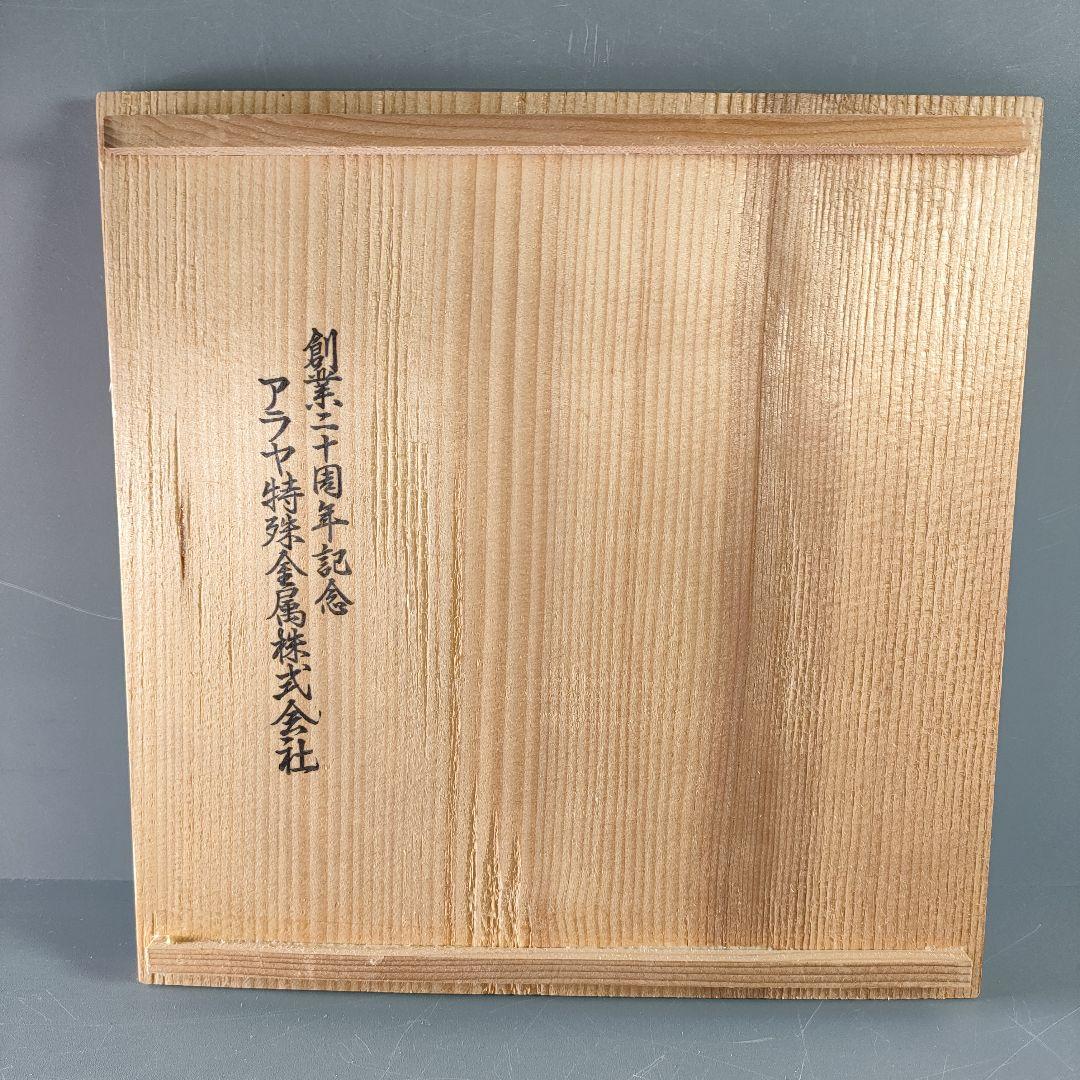 創業二十周年記念
アラヤ特殊金属株式会社